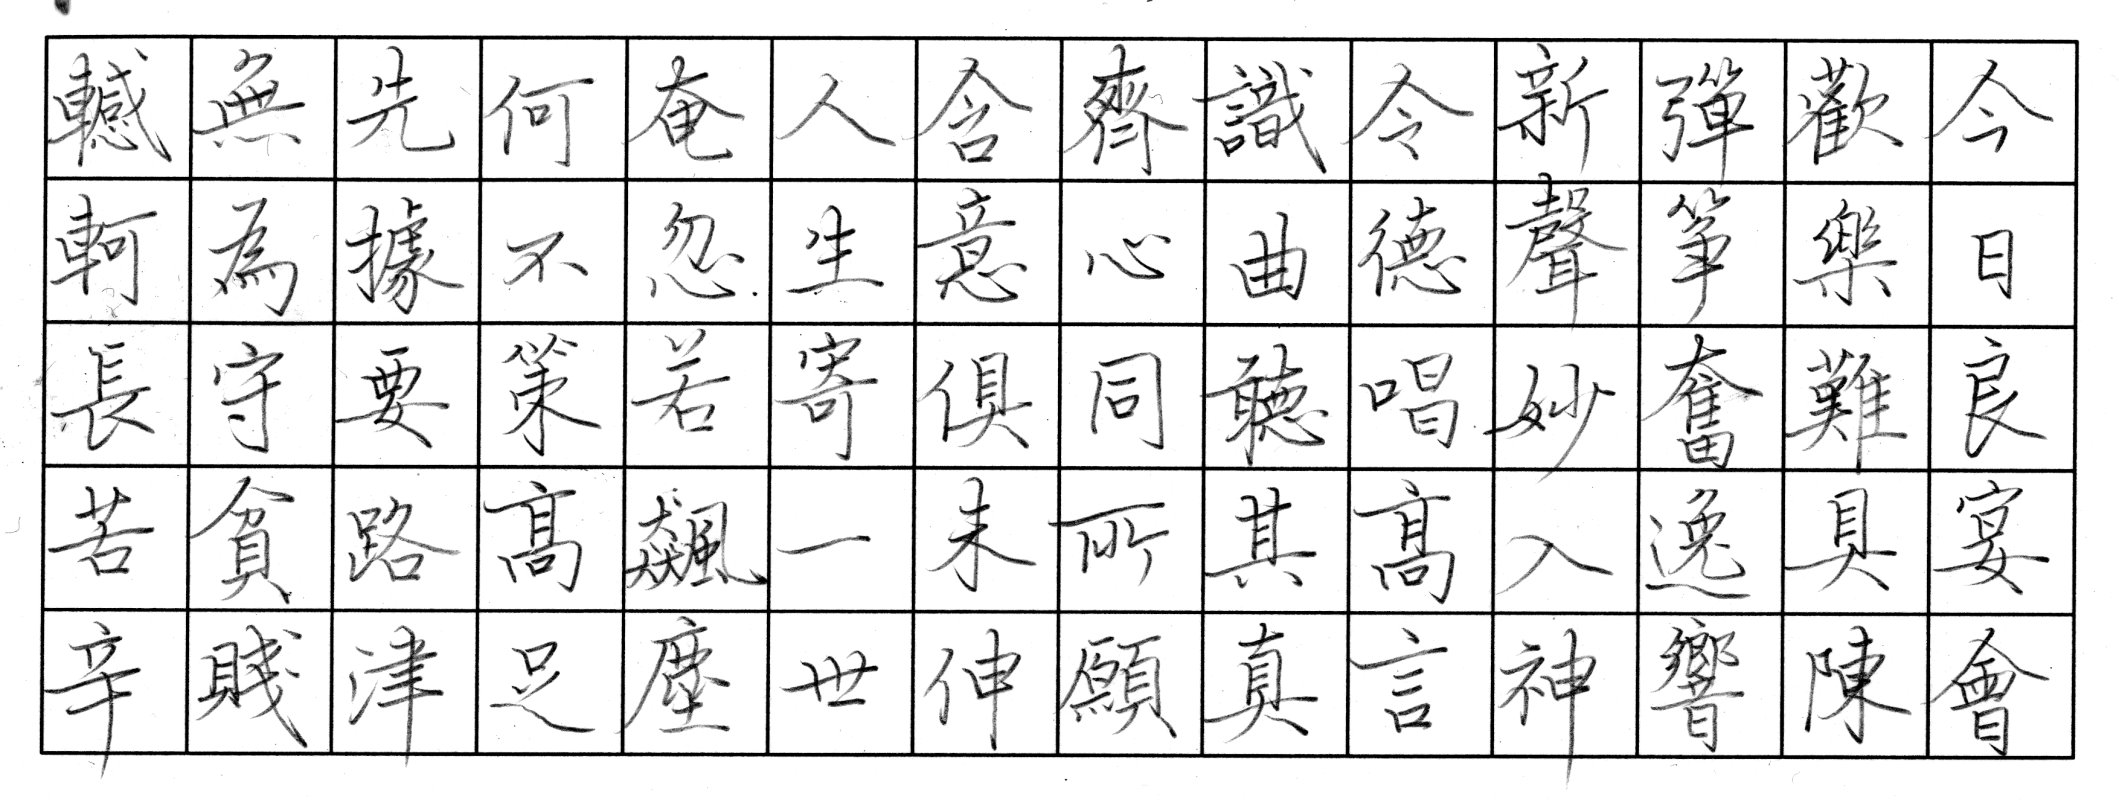 今日良宴會
歡樂難具陳
彈筝奮逸響
新聲妙入神
令德唱高言
識曲聽其真
齊心同所願
含意俱未伸
人生寄一世
奄忽若飆塵
何不策高足
先據要路津
無為守貧賤
轗軻長苦辛